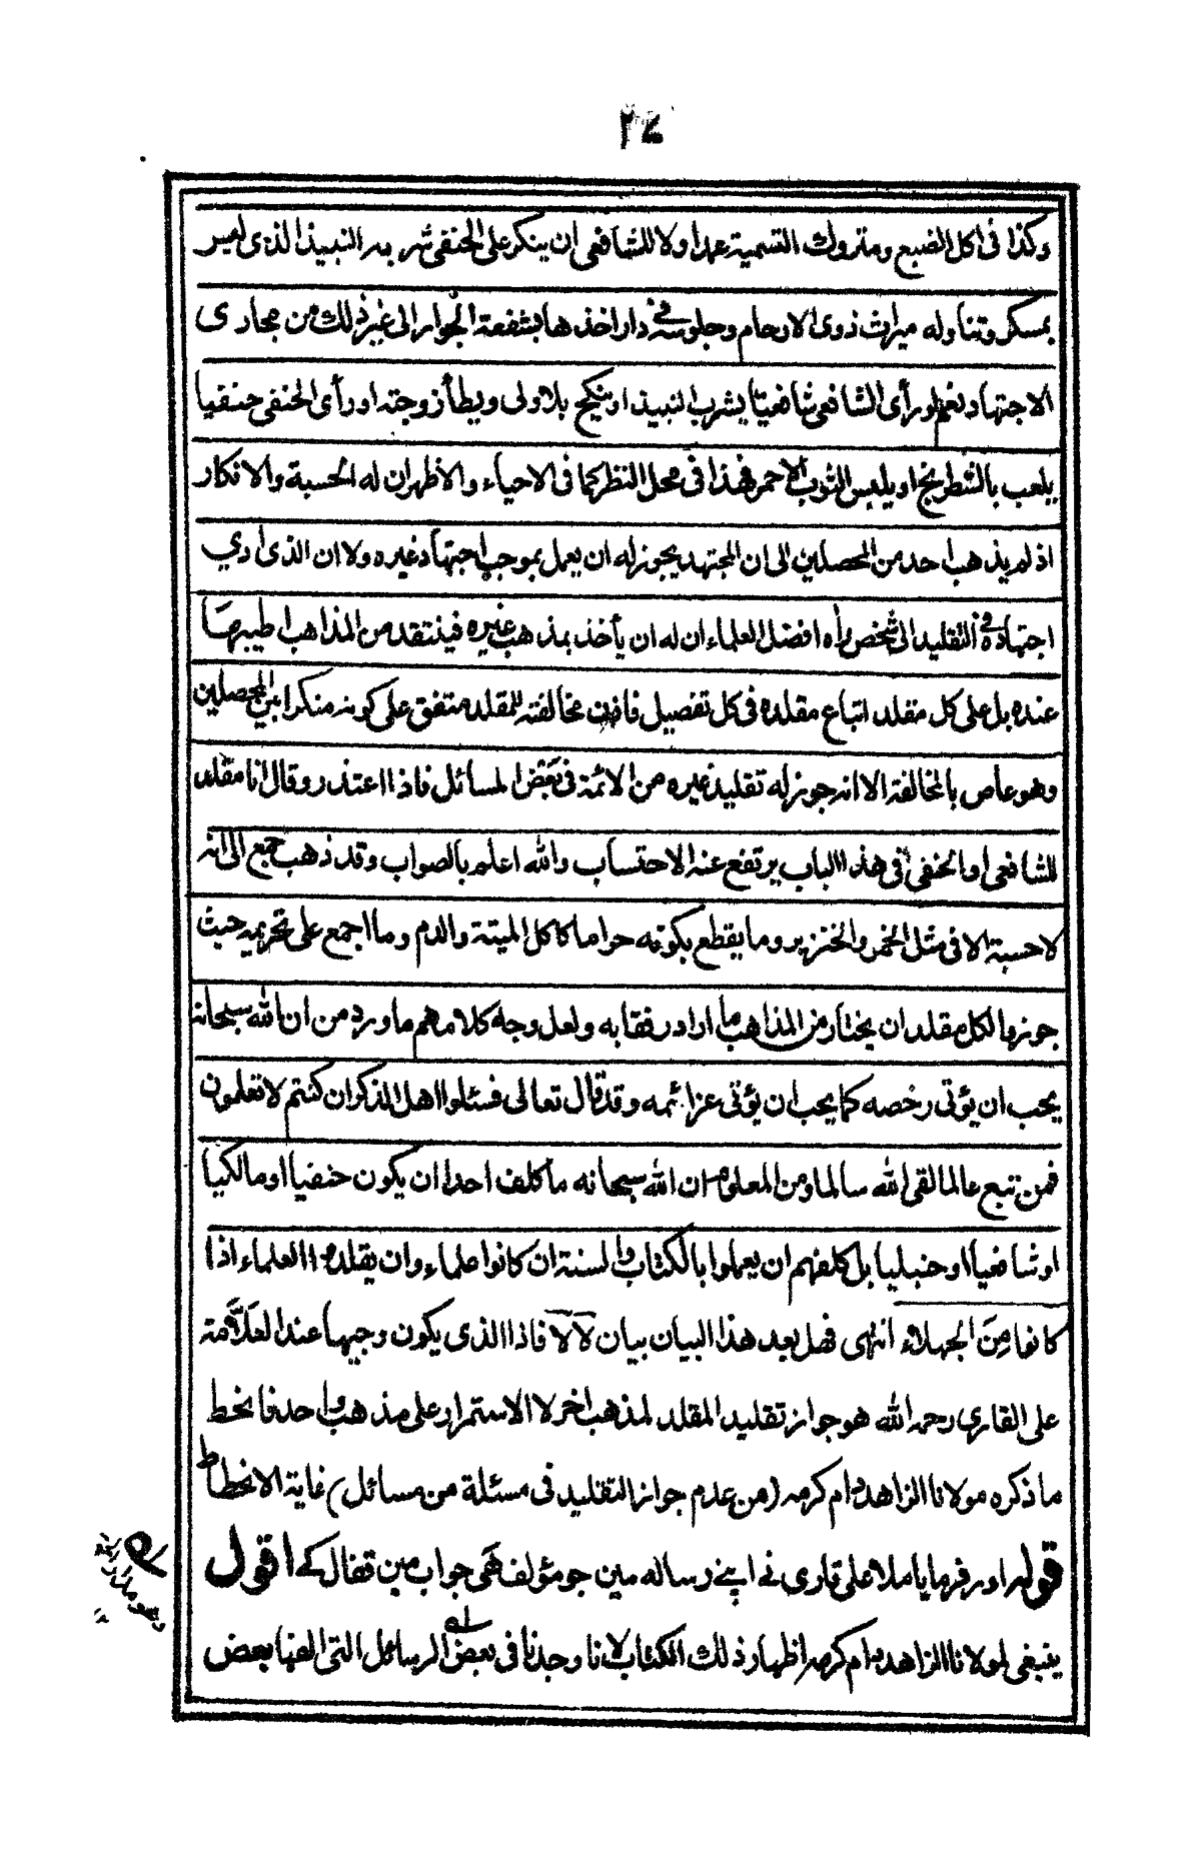 ٢٤
وكذا فى اكل الضبع ومتروك التسمية عمدا ولا للشافعى ان ينكر على الحنفى شربه النبيذ الذى ليس
بمسكر وتناوله ميراث ذوى الارحام وجلوسه فى دار اخذها بشفعة الجوار الى غير ذلك من مجارى
الاجتهاد نعم لو رأى الشافعى شافعيا يشرب النبيذ او ينكح بلا ولى ويطأ زوجته او رأى الحنفى حنفيا
يلعب بالشطرنج او يلبس الثوب الاحمر فهذا فى محل النظر كما فى الاحياء والاظهر ان له الحسبة والانكار
اذ لم يذهب احد من المحصلين الى ان المجتهد يجوز له ان يعمل بموجب اجتهاد غيره ولا ان الذى ادي
اجتهاده فى التقليد الى شخص رأه افضل العلماء ان له ان يأخذ بمذهب غيره فينتقد من المذاهب اطيبها
عنده بل على كل مقلد اتباع مقلده فى كل تفصيل فاذن مخالفته للمقلد متفق على كونه منكرا بين المحصلين
وهو عاص بالمخالفة الا انه جوز له تقليد غيره من الائمة فى بعض المسائل فاذا اعتذر وقال انا مقلد
للشافعى او الحنفى فى هذا الباب يرتفع عنه الاحتساب والله اعلم بالصواب وقد ذهب جمع الى انه
لا حسبة الا فى مثل الخمر والخنزير وما يقطع بكونه حراما كاكل الميتة والدم وما اجمع على تحريمه حيث
جوزوا لكل مقلد ان يختار من المذاهب ما اراد رفقا به ولعل وجه كلامهم ما ورد من ان الله سبحانه
يحب ان يؤتى رخصه كما يحب ان يؤتى عزائمه وقد قال تعالى فسئلوا اهل الذكر ان كنتم لا تعلمون
فمن تبع عالما لقى الله سالما ومن المعلوم ان الله سبحانه ما كلف احدا ان يكون حنفيا او مالكيا
او شافعيا او حنبليا بل كلفهم ان يعملوا بالكتاب والسنة ان كانوا علماء وان يقلدوا العلماء اذا
كانوا مِنَ الجهلاء انتهى فهل بعد هذا البيان بيان لا لا فاذا الذى يكون وجيها عند العلّامة
على القارى رحمه الله هو جواز تقليد المقلد لمذهب اخر لا الاستمرار على مذهب واحد فانحط
ما ذكره مولانا الزاهد دام كرمه (من عدم جواز التقليد فى مسئلة من مسائل) غاية الانحطاط
قوله اور فرمايا ملا على قارى نے اپنے رساله مين جو مؤلف هَى جواب مين قفال كے اقول
ينبغى لمولانا الزاهد دام كرمه اظهار ذلك الكتاب لانا وجدنا فى بعض الرسائل التى الفها بعض